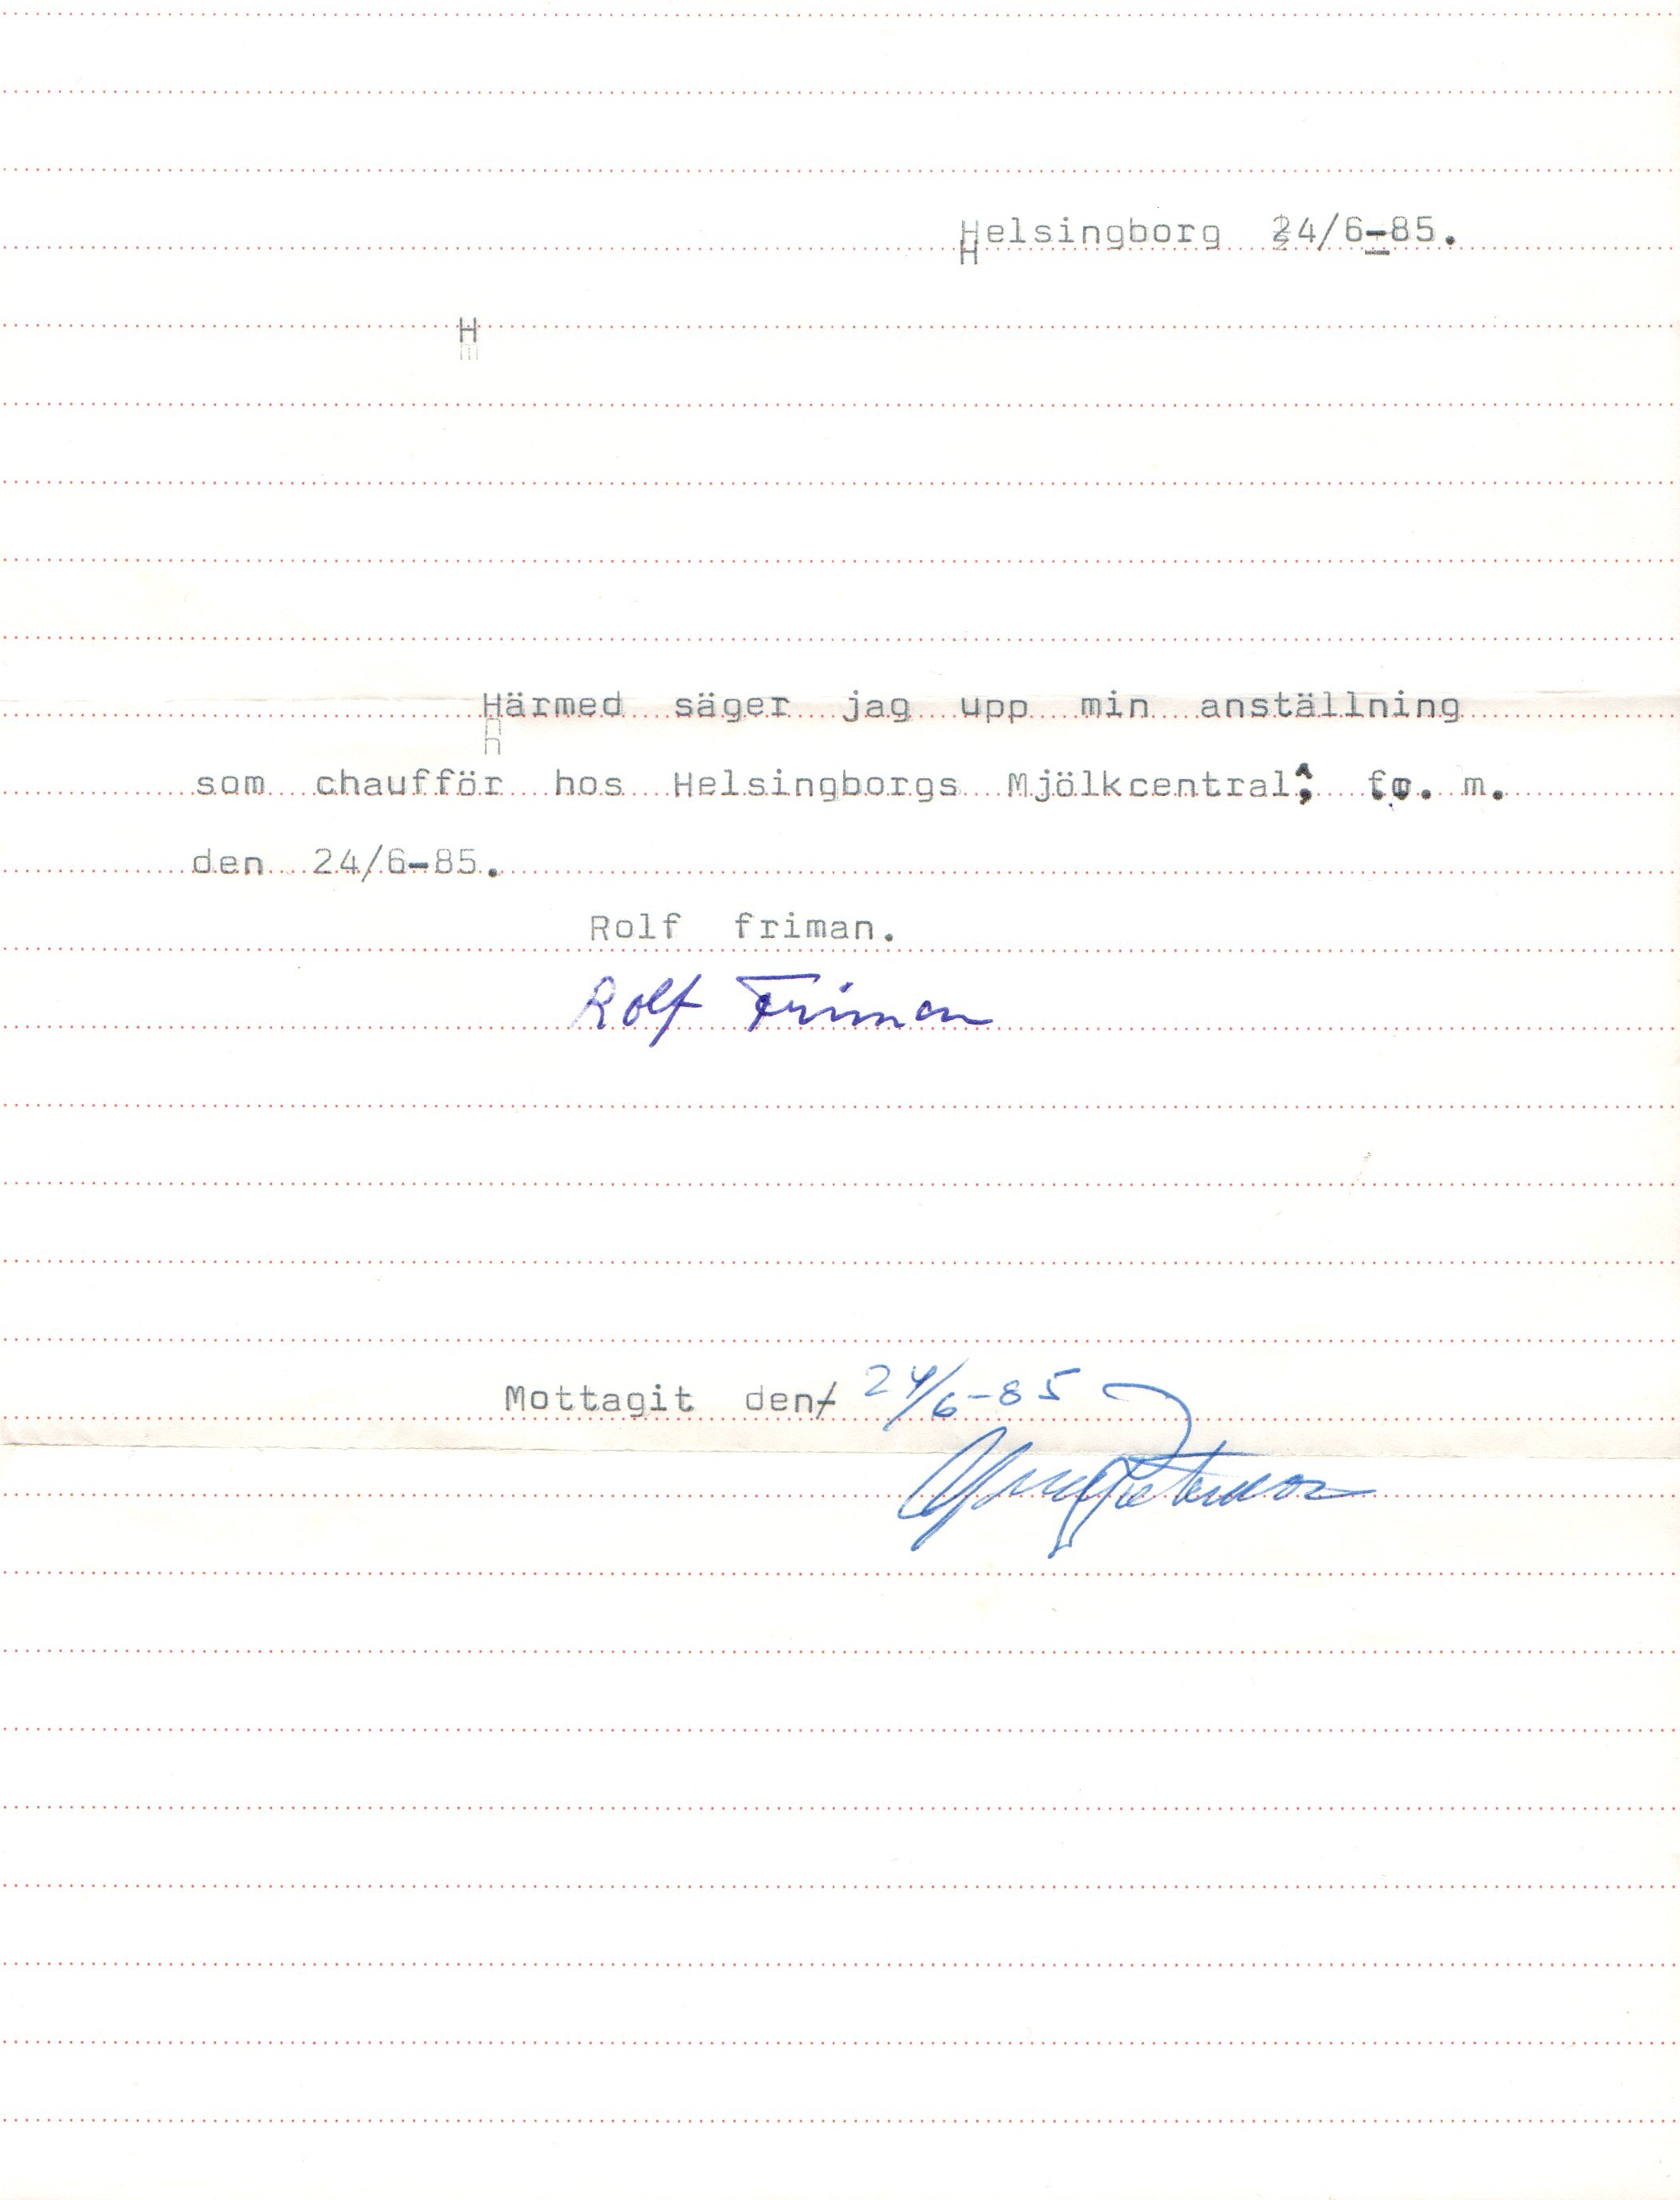 Helsingborg 24/6-85.
H
Härmed säger jag upp min anställning
som chaufför hos Helsingborgs Mjölkcentral, fr. m.
den 24/6-85.
Rolf friman.
Rolf Friman
Mottagit den 24/6-85